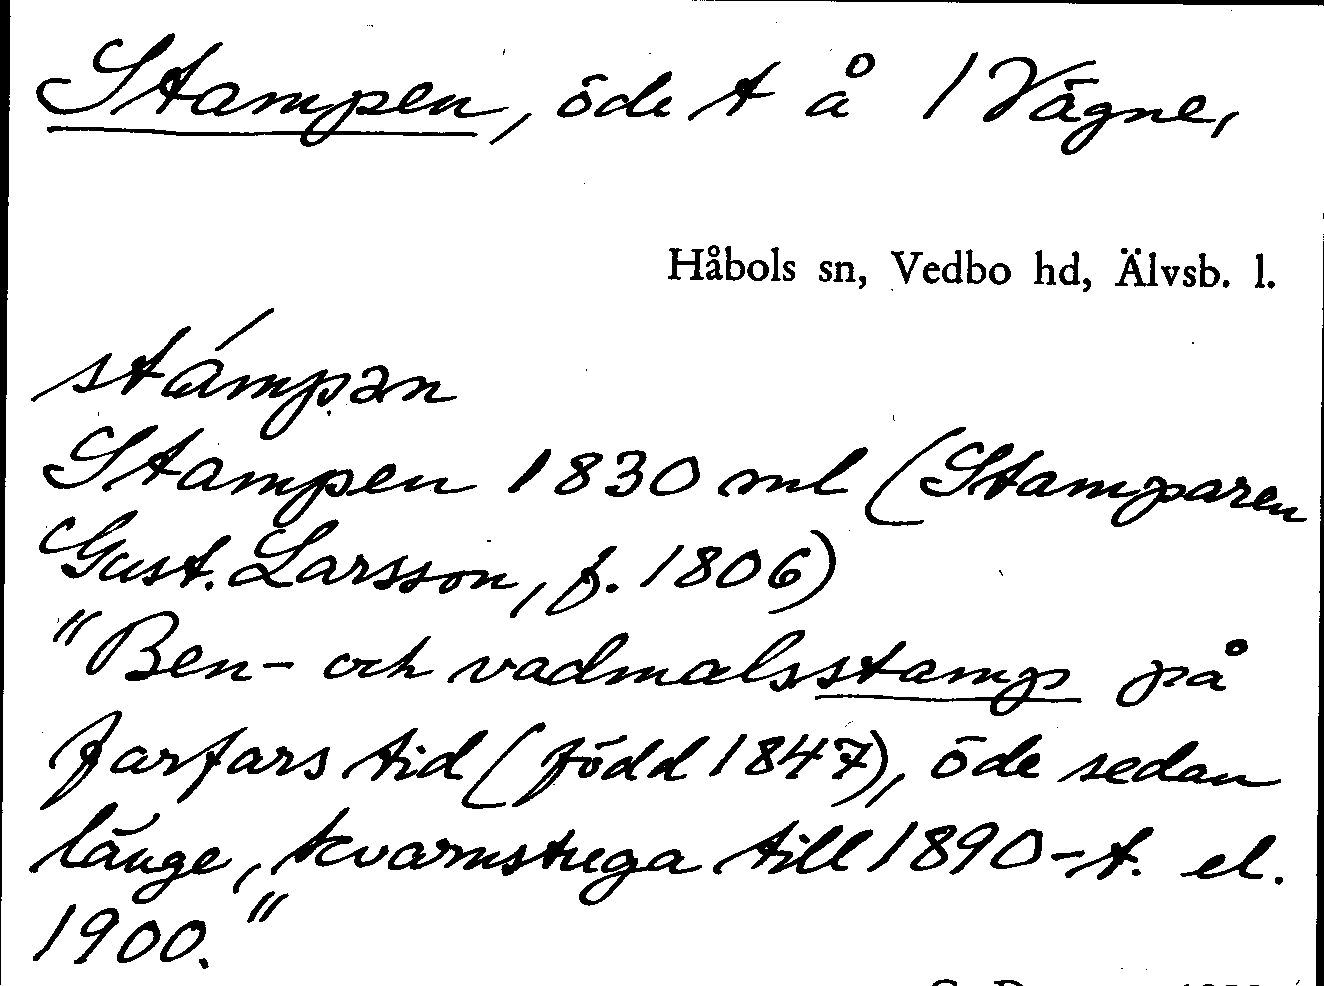 Stampen, öde t å 1 Vägne,
Håbols sn, Vedbo hd, Älvsb. l.
stámpan
Stampen 1830 ml (Stamparen
Gust. Larsson, f. 1806)
"Ben- och vadmalsstamp på
farfars tid (född 1847), öde sedan
länge, kvarnstuga till 1890-t. el.
1900."